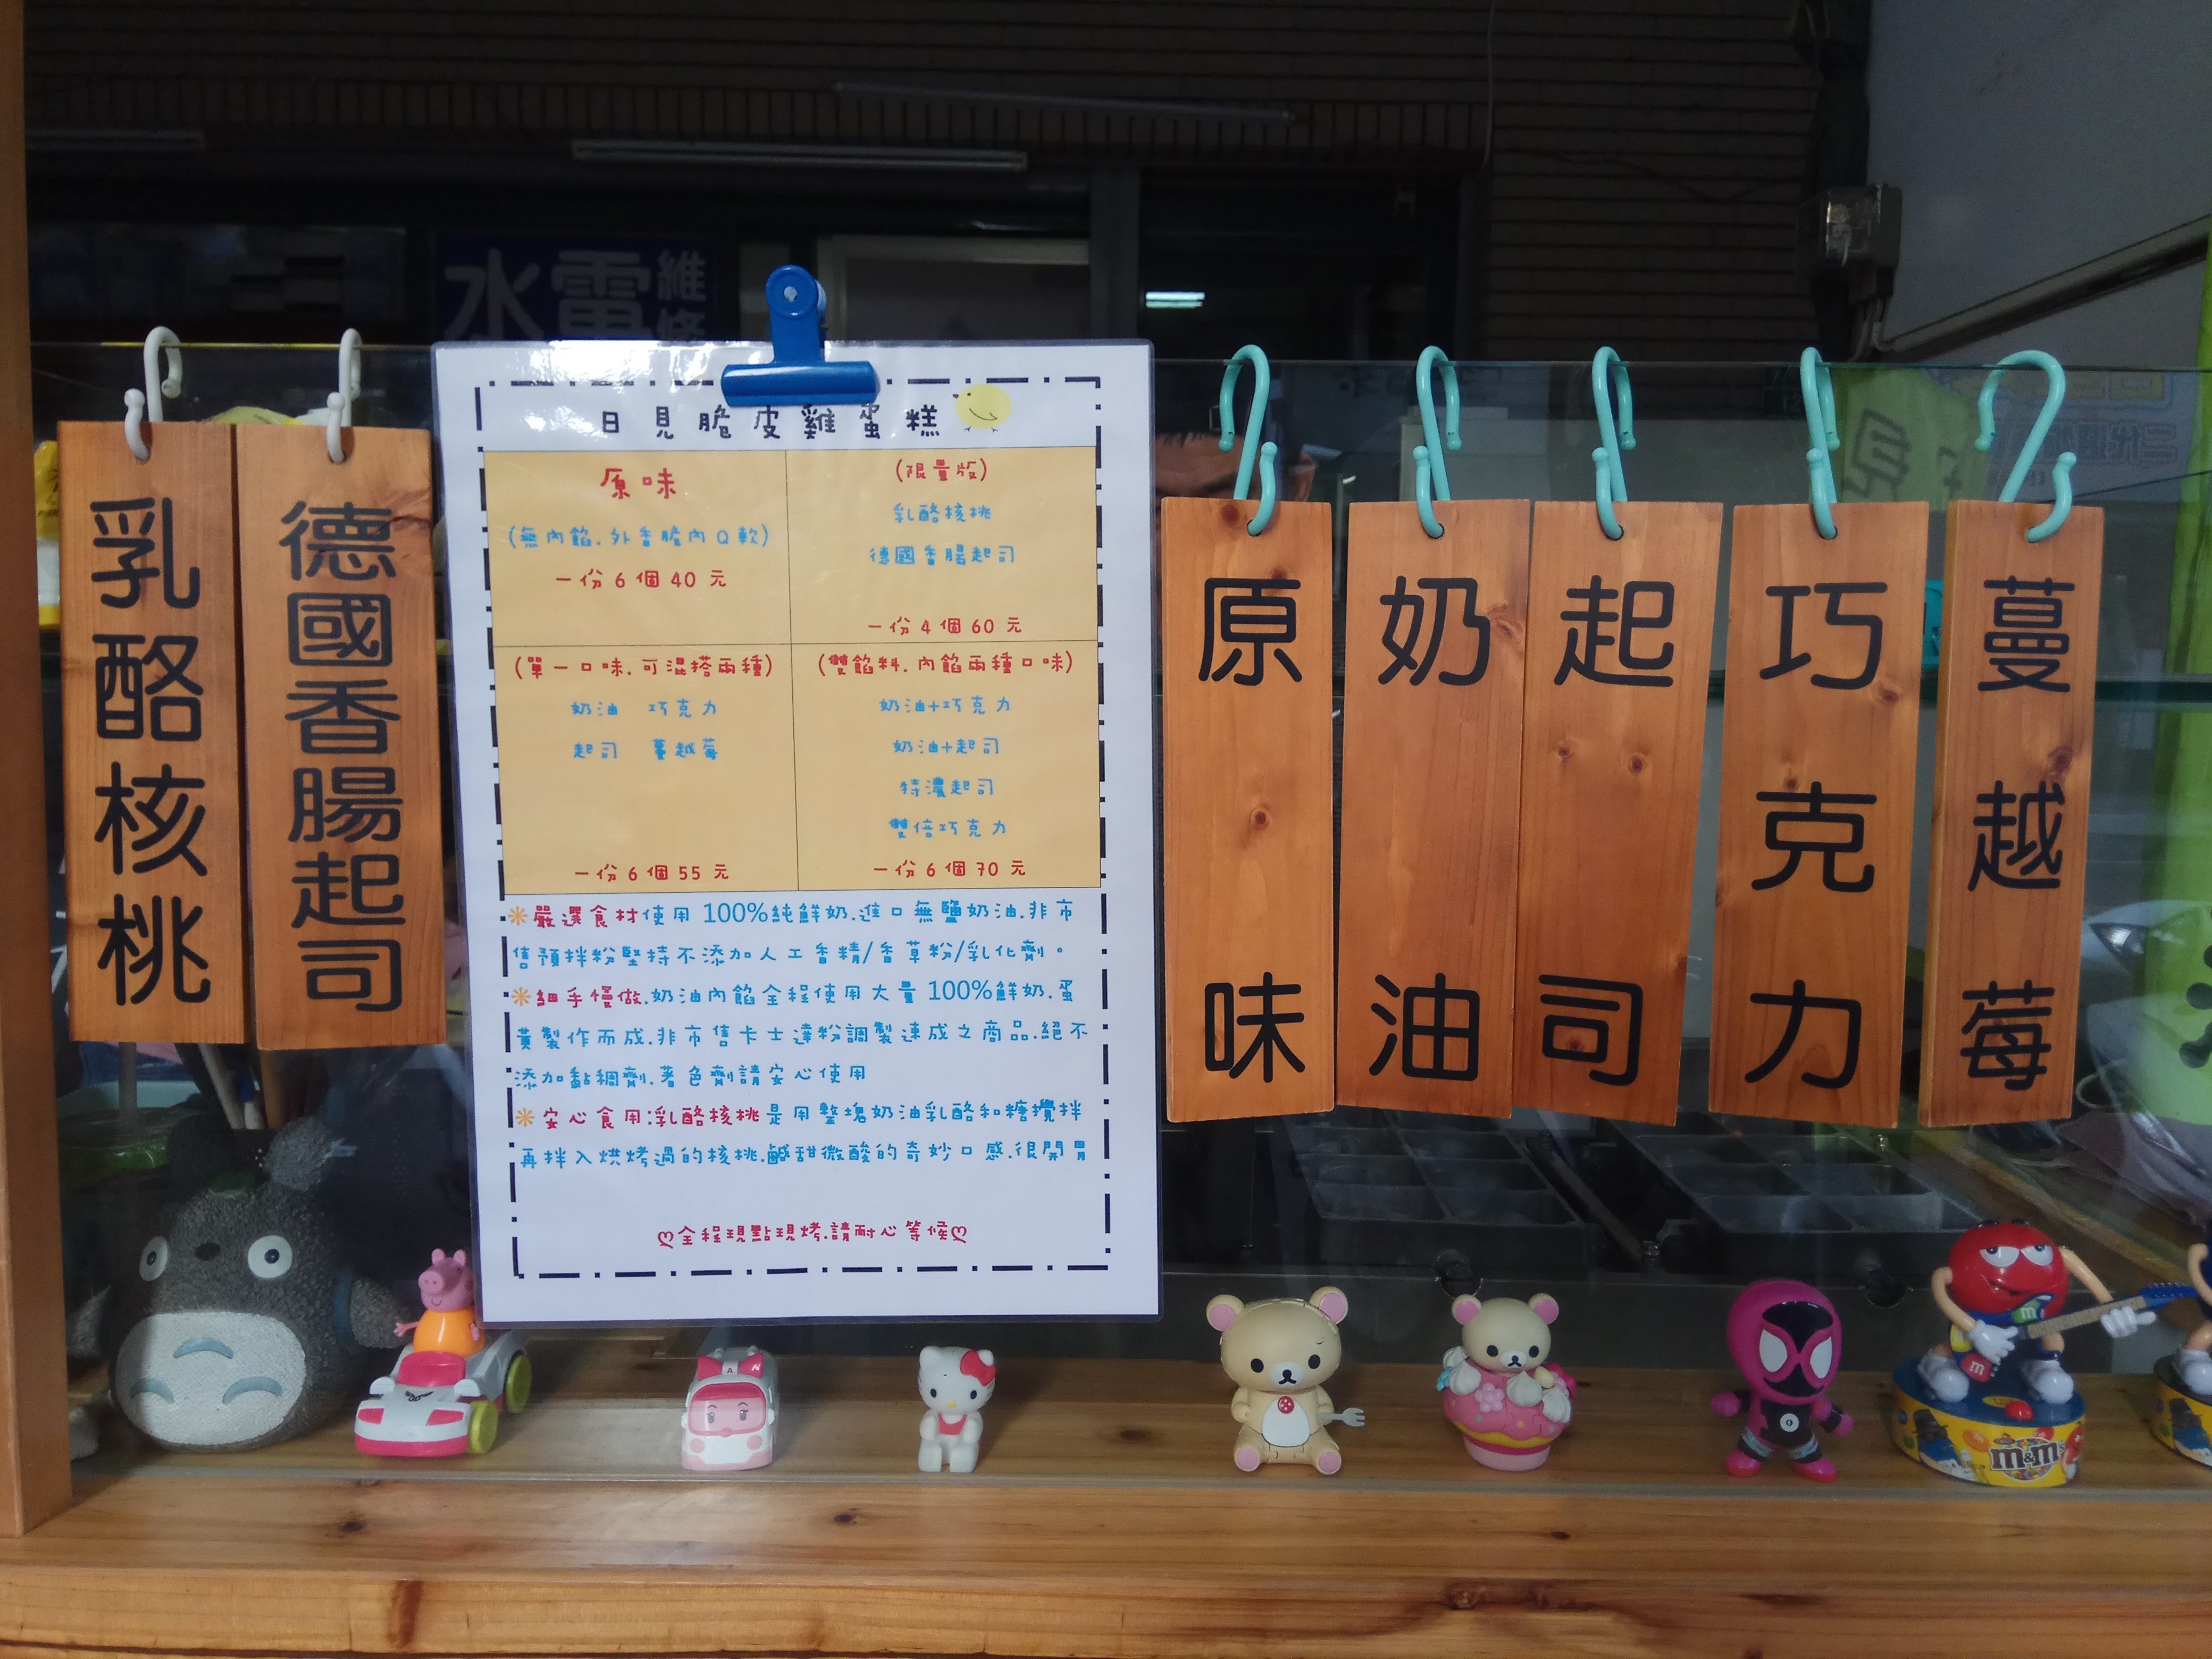 水電維修
乳酪核桃
德國香腸起司
日見脆皮雞蛋糕
原味
(無內餡.外香脆內Q軟)
一份6個40元
(限量版)
乳酪核桃
德國香腸起司
一份4個60元
(單一口味.可混搭兩種)
奶油 巧克力
起司 蔓越莓
一份6個55元
(雙餡料.內餡兩種口味)
奶油+巧克力
奶油+起司
特濃起司
雙倍巧克力
一份6個70元
嚴選食材使用100%純鮮奶.進口無鹽奶油.非市
售預拌粉堅持不添加人工香精/香草粉/乳化劑。
細手慢做.奶油內餡全程使用大量100%鮮奶.蛋
黃製作而成.非市售卡士達粉調製速成之商品.絕不
添加黏稠劑.著色劑請安心使用
安心食用:乳酪核桃是用整塊奶油乳酪和糖攪拌
再拌入烘烤過的核桃.鹹甜微酸的奇妙口感.很開胃
ღ全程現點現烤.請耐心等候ღ
原味
奶油
起司
巧克力
蔓越莓
m&m's